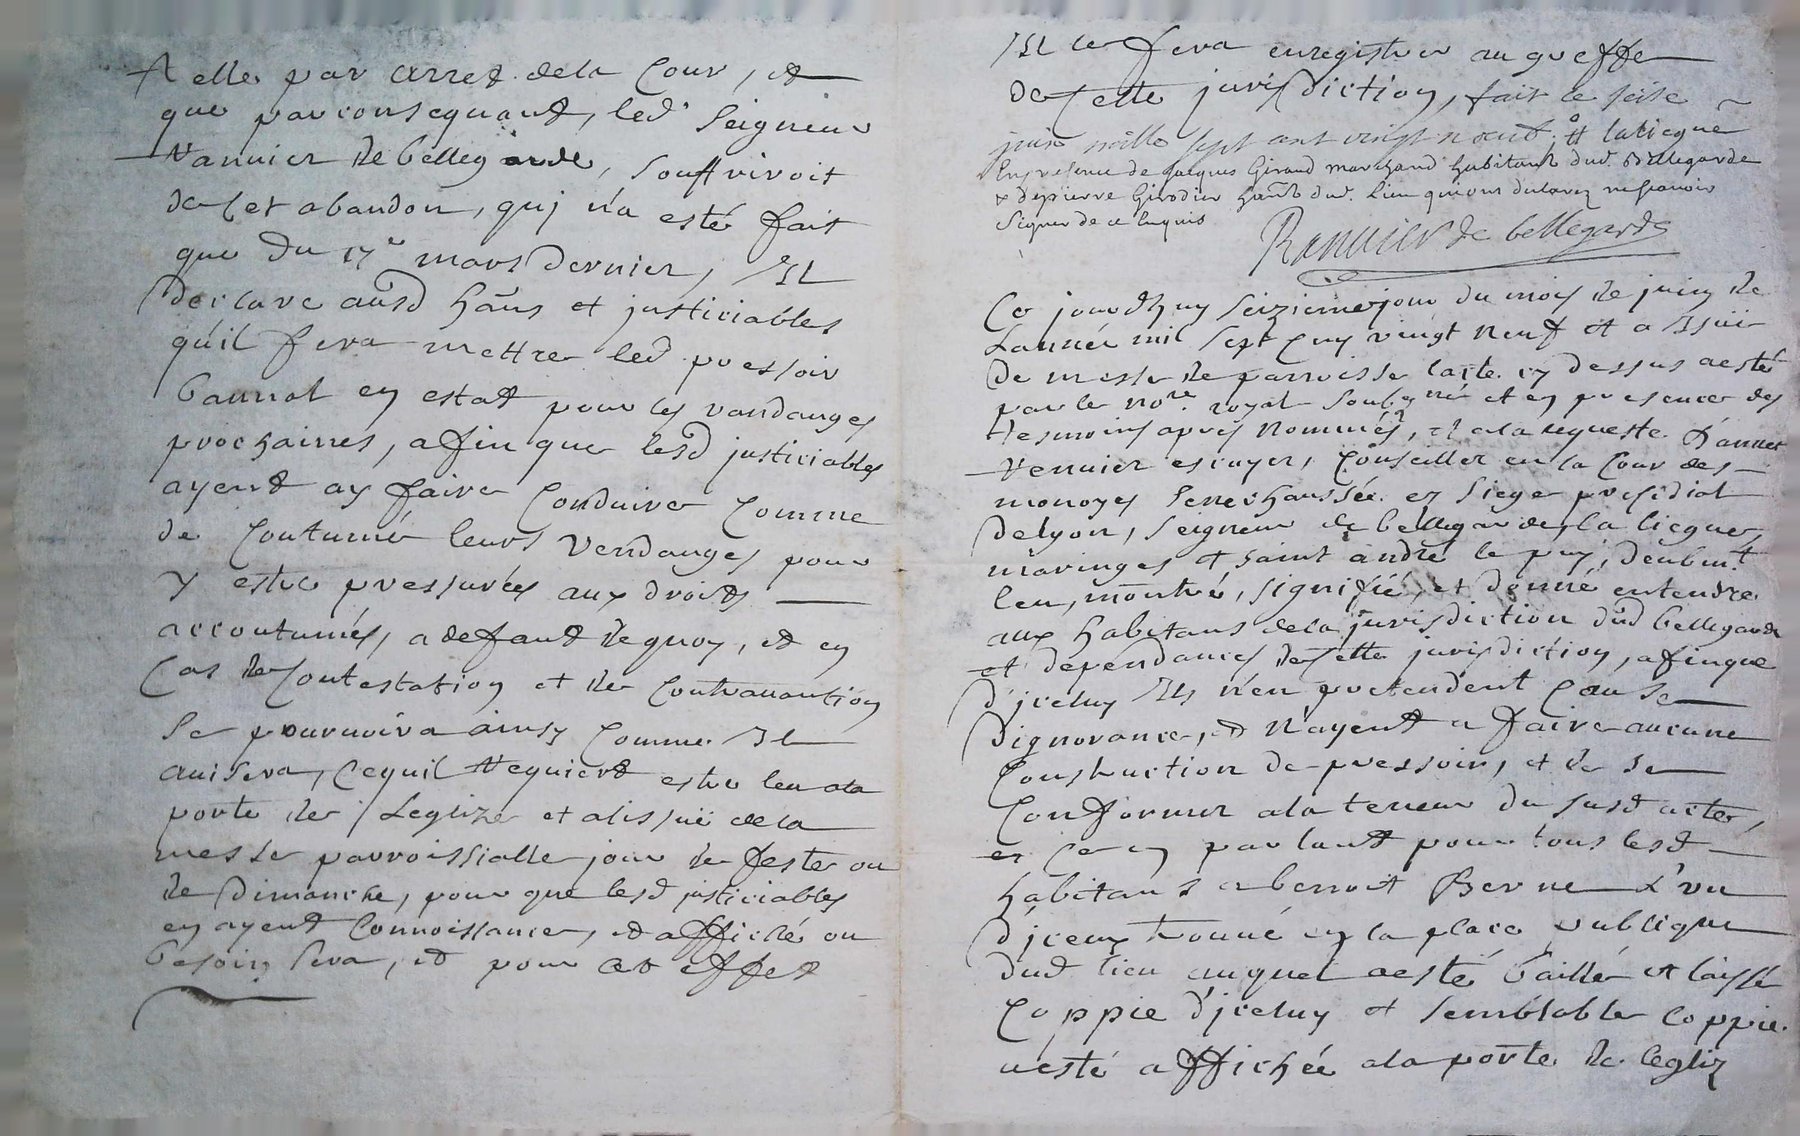 A elle par arret de la Cour, et
que par consequant, led. Seigneur
Ranvier de bellegarde, souffriroit
de Cet abandon, quj n'a esté fait
que du 17e mars dernier, Il
declare ausd hāns et justiciables
qu'il fera mettre led pressoir
bannal en estat pour les vandanges
prochaines, afin que lesd justiciables
ayent ay faire Conduire Comme
de Coutumé leurs Vendanges pour
y estre pressurées aux droits
accoutumés, a defaut de quoy, et en
Cas de Contestation et de Contravantion
Se pourvoira ainsy Comme Il
avisera, Ce quil Requiert estre leu a la
porte de Leglize et a lissuë de la
messe parroissialle jour de feste ou
de Dimanche, pour que lesd justiciables
en ayent Connoissance, et affiché ou
besoin Sera, et pour Cet effet
Il le fera enregistrer au greffe
de Cette jurisdiction, fait le seise
juin mille sept cent vingt neuf. a laliegue
En presence de Jacques Giraud marchand habitant dud. Bellegarde
& de pierre Girodier hānt dud. Lieu qui ont declarez ne scavoir
Signer de ce Enquis
Ranvier de bellegarde
Ce jourdhuy Seizieme jour du mois de juin de
Lannée mil Sept Cens vingt Neuf et a Issüe
de messe de parroisse lacte cy dessus a esté
par le nore. royal Soubzné et en presence des
tesmoins apres Nommés, et a la requeste d'annet
Renvier escuyer, Conseiller en la Cour des
monoyes Senechaussée et Siege presidial
de lyon, Seigneur de bellegarde, la liegue,
maringes et saint andré le puy, deubmt.
leu, montré, signifié, et donné entendre
aux habitans de la jurisdiction dud bellegarde
et dependances de Cette jurisdiction, afin que
d'jceluy Ils n'en pretendent Cause
d'ignorance, et N'ayent a faire aucune
Construction de pressoirs, et de se
Conformer a la teneur du susd acte,
et Ce en parlant pour tous lesd
habitans a benoit Berne L'un
d'jceux trouvé en la place publique
dud lieu auquel a esté baillé et laissé
Coppie d'jceluy et semblable Coppie
a esté affichée a la porte de legliz